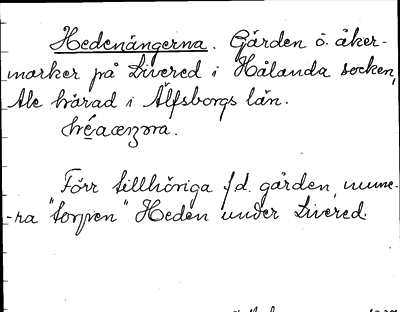 Hedenängerna. Gården ö. åker-
marker på Livered i Hålanda socken,
Ale härad i Älfsborgs län.

Förr tillhöriga f.d. gården, nume-
-ra "torpen" Heden under Livered.